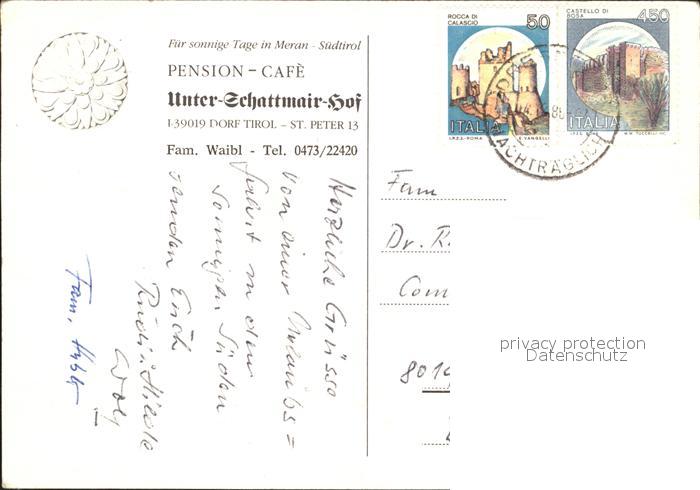 Für sonnige Tage in Meran - Südtirol
PENSION - CAFÈ
Unter-Schattmair-Hof
I-39019 DORF TIROL – ST. PETER 13
Fam. Waibl - Tel. 0473/22420
ROCCA DI
CALASCIO
50
ITALIA
I.P.Z.S.-ROMA E. VANGELLI
CASTELLO DI
BOSA
450
ITALIA
I.P.Z.S. ROMA
NACHTRÄGLICH
Herzliche Grüsse
von einer Urlaubs=
fahrt in den
sonnigen Süden
senden Euch
Rudi u. Hilde
Fam.
Fam
Dr. R.
Com
801
privacy protection
Datenschutz